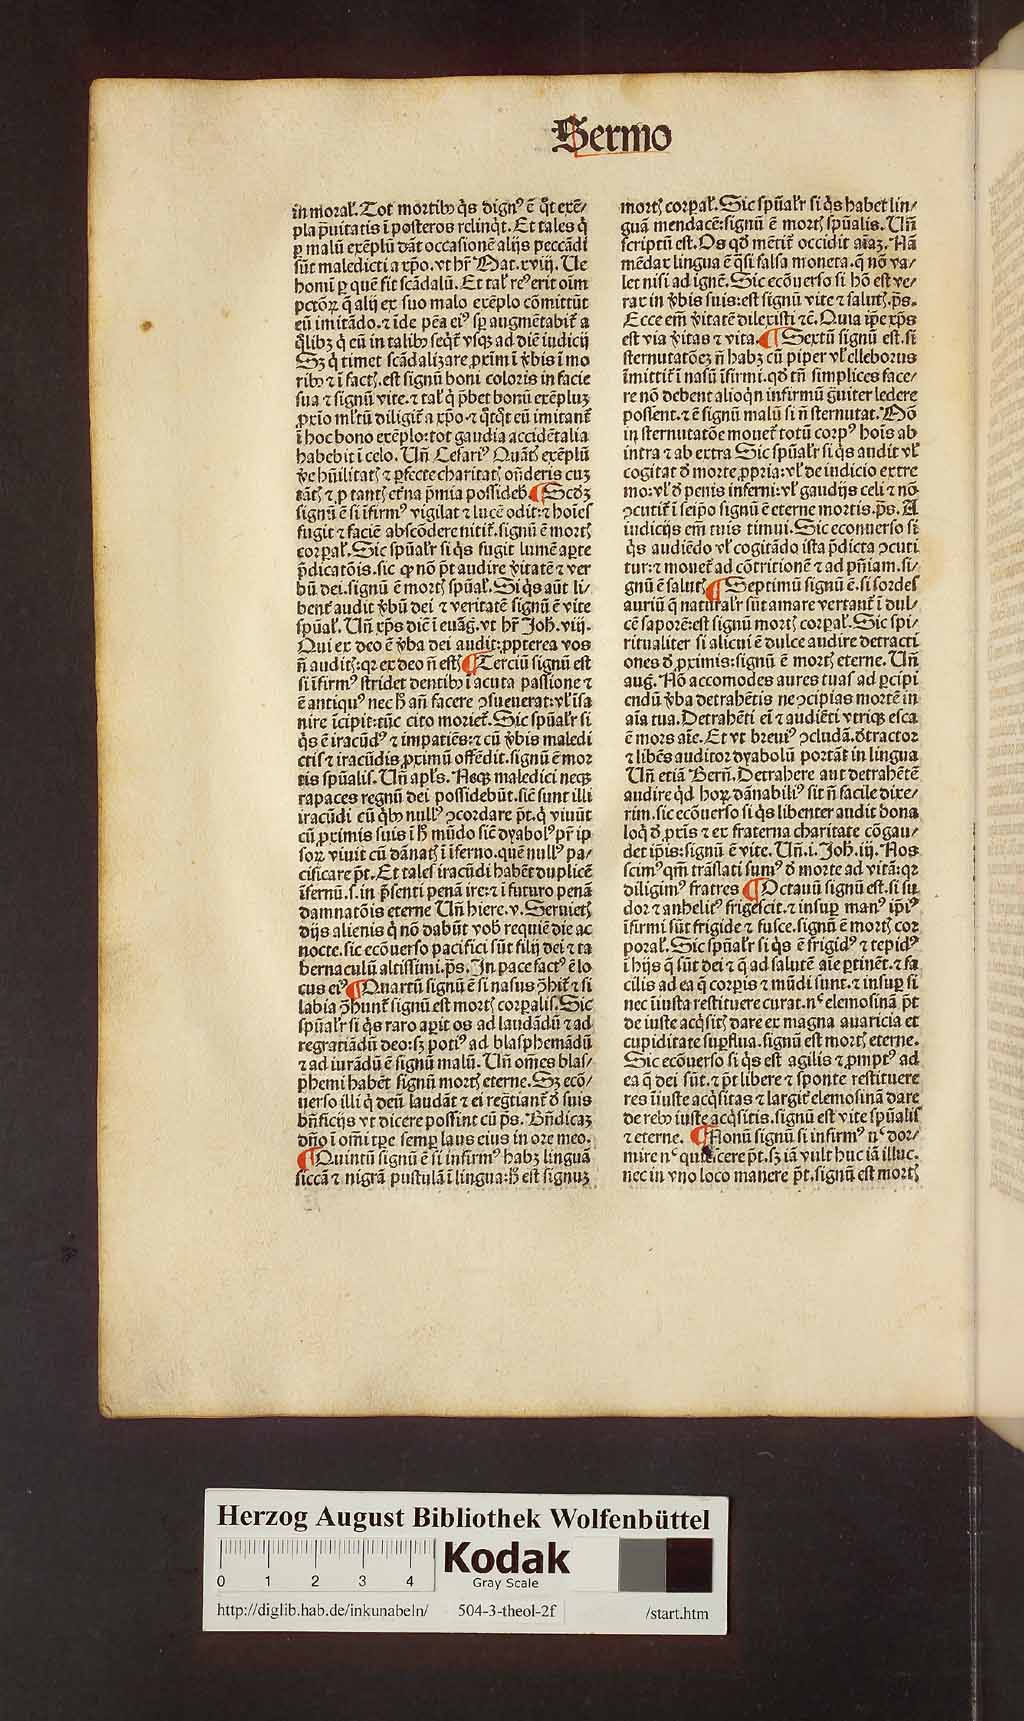 Sermo
in moral̃. Tot mortibꝰ q̃s dignꝰ ē q̃t exē/
pla prauitatis ī posteros relinq̃t. Et tales q̇
ꝑ malū exēplū dāt occasionē alijs peccādi
sūt maledicti a xp̄o. vt hr̄ Mat. xviij. Ue
homī ꝑ quē fit scādalū. Et tal̃ reꝰ erit oīm
pctōꝝ q̄ alij ex suo malo exēplo cōmittūt
eū imitādo. ⁊ īde pēa eiꝰ sꝑ augmētabit̃ a
q̇libꝫ q̇ eū in talibꝰ seqt̃ vsqꝫ ad diē iudicij
Sꝫ q̇ timet scādalizare ꝓximī ī v̄bis ī mo
ribꝰ ⁊ ī factꝭ. est signū boni coloris in facie
sua ⁊ signū vite. ⁊ tal̃ q̇ p̄bet bonū exēpluꝫ
ꝓxīo ml̃tū diligit̃ a xp̄o. ⁊ q̇tq̇t eū imitant̃
ī hoc bono exēplo: tot gaudia accidētalia
habebit ī celo. Un̄ Cesariꝰ Quātꝭ exēplū
v̄e hūilitatꝭ ⁊ ꝑfecte charitatꝭ on̄deris cuꝫ
tātꝭ ⁊ ꝓ tantꝭ et̃na p̄mia possideb̃. ¶ Scd̓ꝫ
signū ē si īfirmꝰ vigilat ⁊ lucē odit: ⁊ hoīes
fugit ⁊ faciē abscōdere nitit̃. signū ē mortꝭ
corꝑal̃. Sic spūal̃r si q̇s fugit lumē aꝑte
p̄dicatōis. sic ꝙ nō pt̄ audire v̄itatē ⁊ ver
bū dei. signū ē mortꝭ spūal̃. Si q̇s aūt li/
bent̃ audit v̄bū dei ⁊ veritatē signū ē vite
spūal̃. Un̄ xp̄s diē ī euāg̃. vt hr̄ Joh̃. viij.
Qui ex deo ē v̄ba dei audit: ꝓpterea vos
nō auditꝭ: qꝛ ex deo nō estꝭ ¶ Terciū signū est
si īfirmꝰ stridet dentibꝰ ī acuta passione ⁊
ē antiquꝰ nec h̃ an̄ facere ꝯsueuerat: vl̃ īsa
nire īcipit: tūc cito moriet̃. Sic spūal̃r si
q̇s ē iracūdꝰ ⁊ impatiēs: ⁊ cū v̄bis maledi
ctis ⁊ iracūdis ꝓximū offēdit. signū ē mor
tis spūalis. Un̄ apl̃s. Neqꝫ maledici neqꝫ
rapaces regnū dei possidebūt. sic̃ sunt illi
iracūdi cū q̇bꝰ nullꝰ ꝯcordare pt̄. q̇ viuūt
cū ꝓximis suis ī h̃ mūdo sic̃ dyabolꝰ pr̃ ip
soꝝ viuit cū dānatꝭ ī īferno. quē nullꝰ pa/
cificare pt̄. Et tales iracūdi habēt duplicē
īfernū. s. in p̄senti penā ire: ⁊ ī futuro penā
damnatōis eterne Un̄ hiere. v. Seruietꝭ
dijs alienis q̇ nō dabūt vob̃ requiē die ac
nocte. sic ecōuerso pacifici sūt filij dei ⁊ ta
bernaculū altissimi. ps̄. In pace factꝰ ē lo
cus eiꝰ ¶ Quartū signū ē si nasus ꝯ̄hit̃ ⁊ si
labia ꝯ̄hunt̃ signū est mortꝭ corꝑalis. Sic
spūal̃r si q̇s raro aꝑit os ad laudādū ⁊ ad
regratiādū deo: sꝫ potiꝰ ad blasphemādū
⁊ ad iurādū ē signū malū. Un̄ om̄es blas/
phemi habēt signū mortꝭ eterne. Sꝫ ecō/
uerso illi q̇ deū laudāt ⁊ ei reg̃tiant̃ d̓ suis
bn̄ficijs vt dicere possint cū ps̄. Bn̄dicaꝫ
dn̄o ī om̄i tꝑe semꝑ laus eius in ore meo.
¶ Quintū signū ē si infirmꝰ habꝫ linguā
siccā ⁊ nigrā pustulā ī lingua: h̃ est signuꝫ
mortꝭ corꝑal̃. Sic spūal̃r si q̇s habet lin/
guā mendacē: signū ē mortꝭ spūalis. Un̄
scriptū est. Os qd̓ mētit̃ occidit aīaꝫ. Nā
mēdax lingua ē q̄si falsa moneta. q̄ nō va/
let nisi ad ignē. Sic ecōuerso si hō est ve/
rax in v̄bis suis: est signū vite ⁊ salutꝭ. ps̄.
Ecce em̄ v̄itatē dilexisti ⁊c̄. Quia ip̄e xp̄s
est via v̄itas ⁊ vita. ¶ Sextū signū est. si
sternutatōeꝫ nō habꝫ cū piper vl̃ elleborus
īmittit̃ ī nasū īfirmi. qd̓ tn̄ simplices face/
re nō debent alioq̇n infirmū g̃uiter ledere
possent. ⁊ ē signū malū si nō sternutat. Nō
in sternutatōe mouet̃ totū corpꝰ hoīs ab
intra ⁊ ab extra Sic spūal̃r si q̇s audit vl̃
cogitat d̓ morte ꝓpria: vl̃ de iudicio extre
mo: vl̃ d̓ penis inferni: vl̃ gaudijs celi ⁊ nō
ꝯcutit̃ ī seip̄o signū ē eterne mortis. ps̄. A
iudicijs em̄ tuis timui. Sic econuerso si
q̇s audiēdo vl̃ cogitādo ista p̄dicta ꝯcuti
tur: ⁊ mouet̃ ad cōtritionē ⁊ ad pn̄iam. si/
gnū ē salutꝭ ¶ Septimū signū ē. si sordes
auriū q̄ natural̃r sūt amare vertant̃ ī dul/
cē saporē: est signū mortꝭ corꝑal̃. Sic spi/
ritualiter si alicui ē dulce audire detracti
ones d̓ ꝓximis: signū ē mortꝭ eterne. Un̄
aug̃. Nō accomodes aures tuas ad ꝑcipi
endū v̄ba detrahētis ne ꝯcipias mortē in
aīa tua. Detrahēti em̄ ⁊ audiēti vtriqꝫ esca
ē mors aīe. Et vt breuiꝰ ꝯcludā. d̓tractor
⁊ libēs auditor dyabolū portāt in lingua
Un̄ etiā Bern̄. Detrahere aut detrahētē
audire qd̓ hoꝝ dānabiliꝰ sit nō facile dixe/
rim. sic ecōuerso si q̇s libenter audit bona
loq̇ d̓ ꝓxīs ⁊ ex fraterna charitate cōgau/
det ip̄is: signū ē vite. Un̄. i. Joh̃. iij. Nos
scimꝰ qm̄ trāslati sumꝰ d̓ morte ad vitā: qꝛ
diligimꝰ fratres ¶ Octauū signū est. si su
dor ⁊ anhelitꝰ frigescit. ⁊ insuꝑ manꝰ ip̄iꝰ
īfirmi sūt frigide ⁊ fusce. signū ē mortꝭ cor
poral̃. Sic spūal̃r si q̇s ē frigidꝰ ⁊ tepidꝰ
ī hijs q̄ sūt dei ⁊ q̄ ad salutē aīe ꝑtinēt. ⁊ fa
cilis ad ea q̄ corꝑis ⁊ mūdi sunt. ⁊ insuꝑ si
nec īiusta restituere curat. nᶜ elemosinā pt̄
de iuste acq̇sitꝭ dare ex magna auaricia et
cupiditate suꝑflua. signū est mortꝭ eterne.
Sic ecōuerso si q̇s est agilis ⁊ ꝓmptꝰ ad
ea q̄ dei sūt. ⁊ pt̄ libere ⁊ sponte restituere
res īiuste acq̇sitas ⁊ largit̃ elemosinā dare
de rebꝰ iuste acq̇sitis. signū est vite spūalis
⁊ eterne. ¶ Nonū signū si infirmꝰ nᶜ dor/
mire nᶜ quiescere pt̄. sꝫ iā vult huc iā illuc.
nec in vno loco manere pt̄. signū est mortꝭ
Herzog August Bibliothek Wolfenbüttel
0 1 2 3 4
Kodak
Gray Scale
http://diglib.hab.de/inkunabeln/ 504-3-theol-2f /start.htm